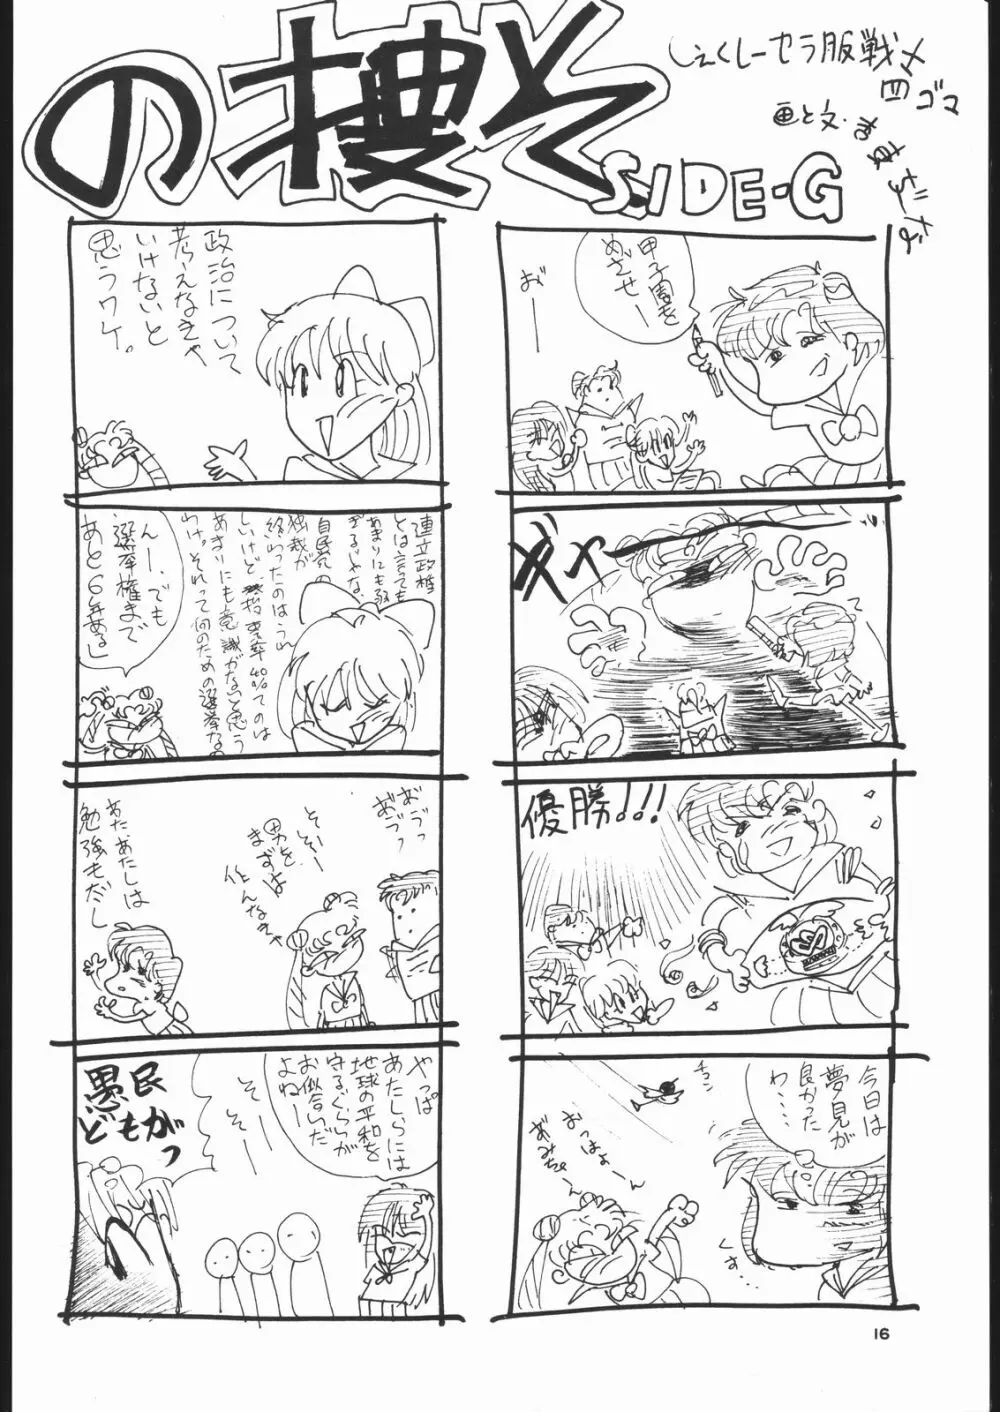 の捜そ
SIDE-G
画と文・
甲子園を
めざせー
おー
ギャー
優勝!!!
今日は
夢見が
良かった
わ……
チュン
おっはよーん
あみちゃーん
くす…
政治について
考えなきゃ
いけないと
思うワケ。
連立政権
とは言ても
あまりにも
自民党
独裁が
終わったのはうれ
しいけど 投票率40%てのは
あまりにも意識がないと思う
わけ。それって何のための選挙な
んー、でも
選挙権まで
あと6年ある」
おうっ
おうっ
そいー
まずは
男を
作んなきゃ
あたあたしは
勉強もだし
やっぱ
あたしらには
地球の平和を
守るぐらいが
お似合いだ
よねー
そーそー
愚民
どもがっ
16